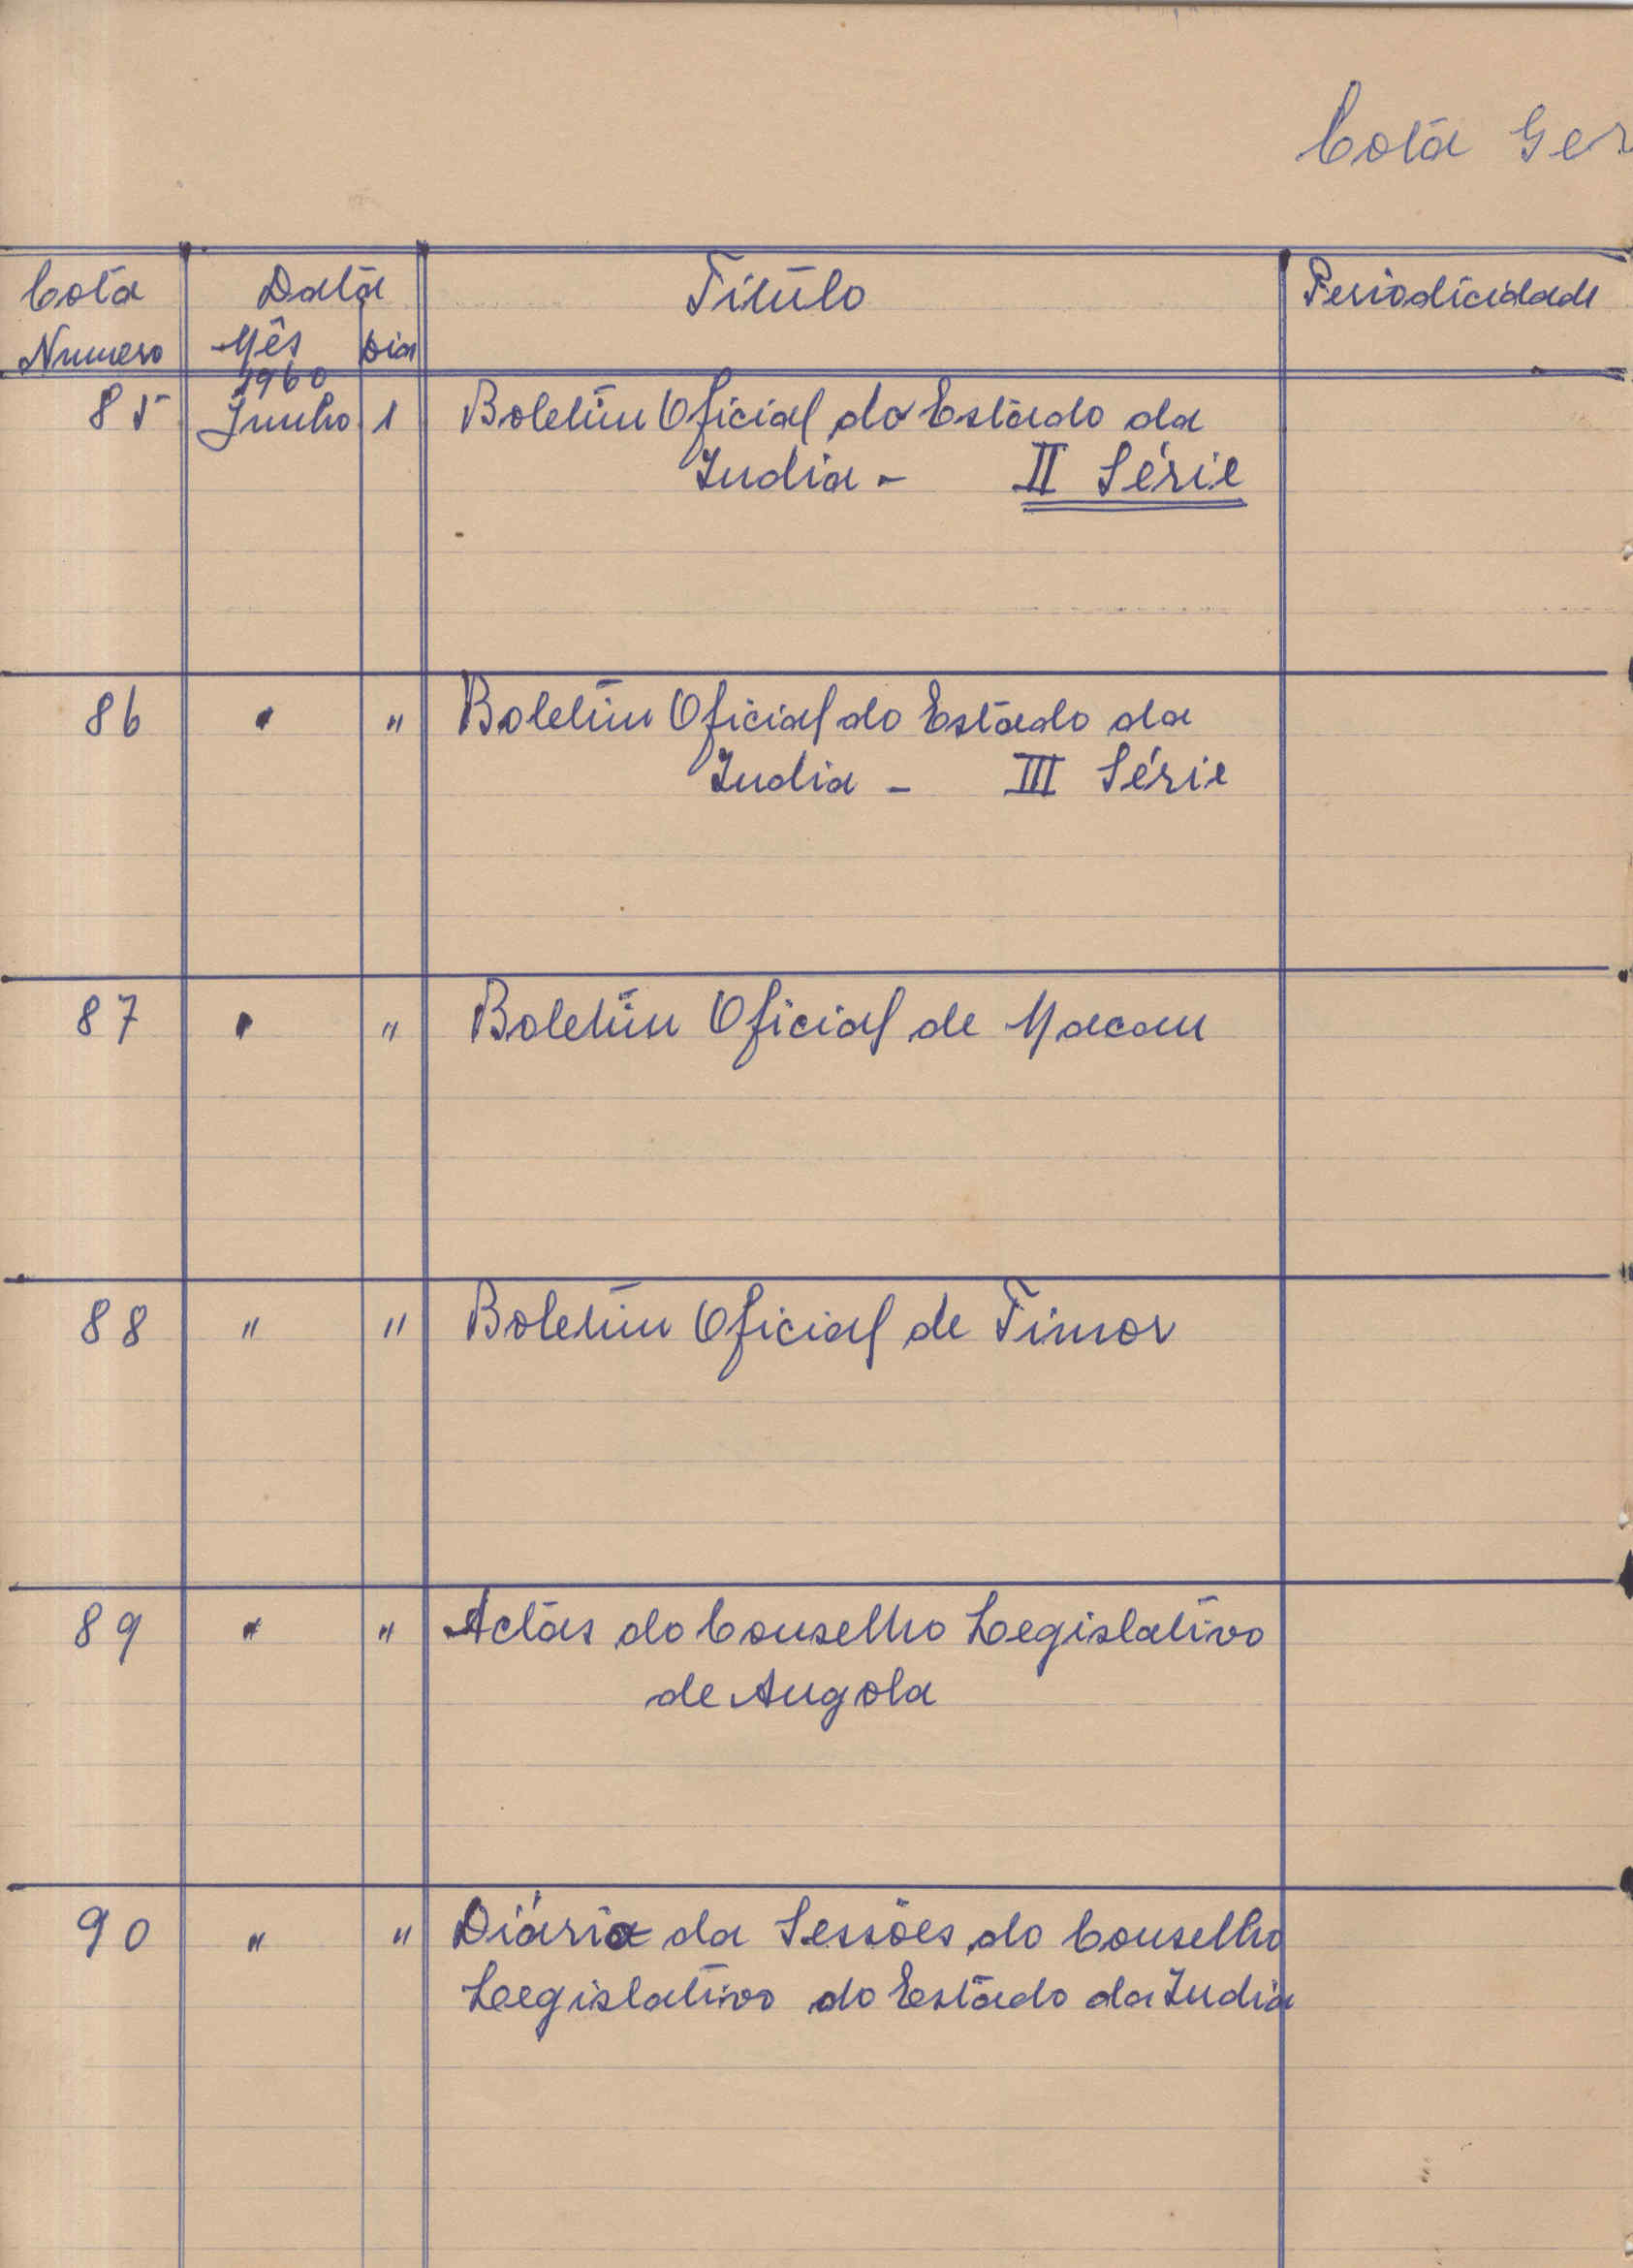 Cota Ger
Cota Data Titulo Periodicidade
Numero Mês Dia
1960
85 Junho 1 Boletim Oficial do Estado da
India - II Série
86 " " Boletim Oficial do Estado da
India - III Série
87 " " Boletim Oficial de Macau
88 " " Boletim Oficial de Timor
89 " " Actas do Conselho Legislativo
de Angola
90 " " Diário da Sessões do Conselho
Legislativo do Estado da India